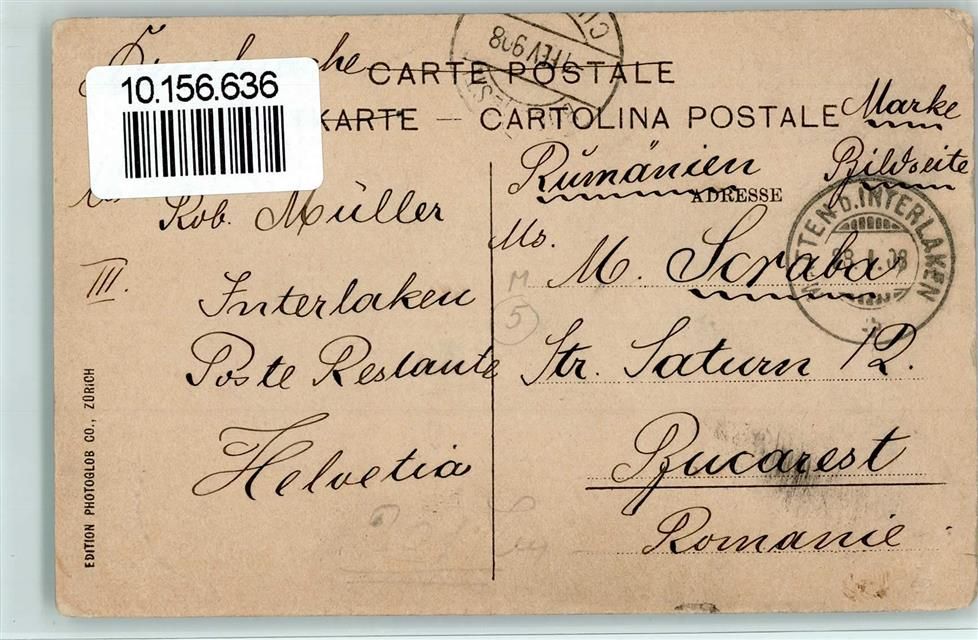 10.156.636
CARTE POSTALE
KARTE — CARTOLINA POSTALE
Marke
Bildseite
Rumänien
ADRESSE
MATTEN b. INTERLAKEN
Rob. Müller
III.
Interlaken
Poste Restante
Helvetia
Ms.
M. Scraba
Str. Saturn 12.
Bucarest
Romanie
M
5
EDITION PHOTOGLOB CO., ZÜRICH